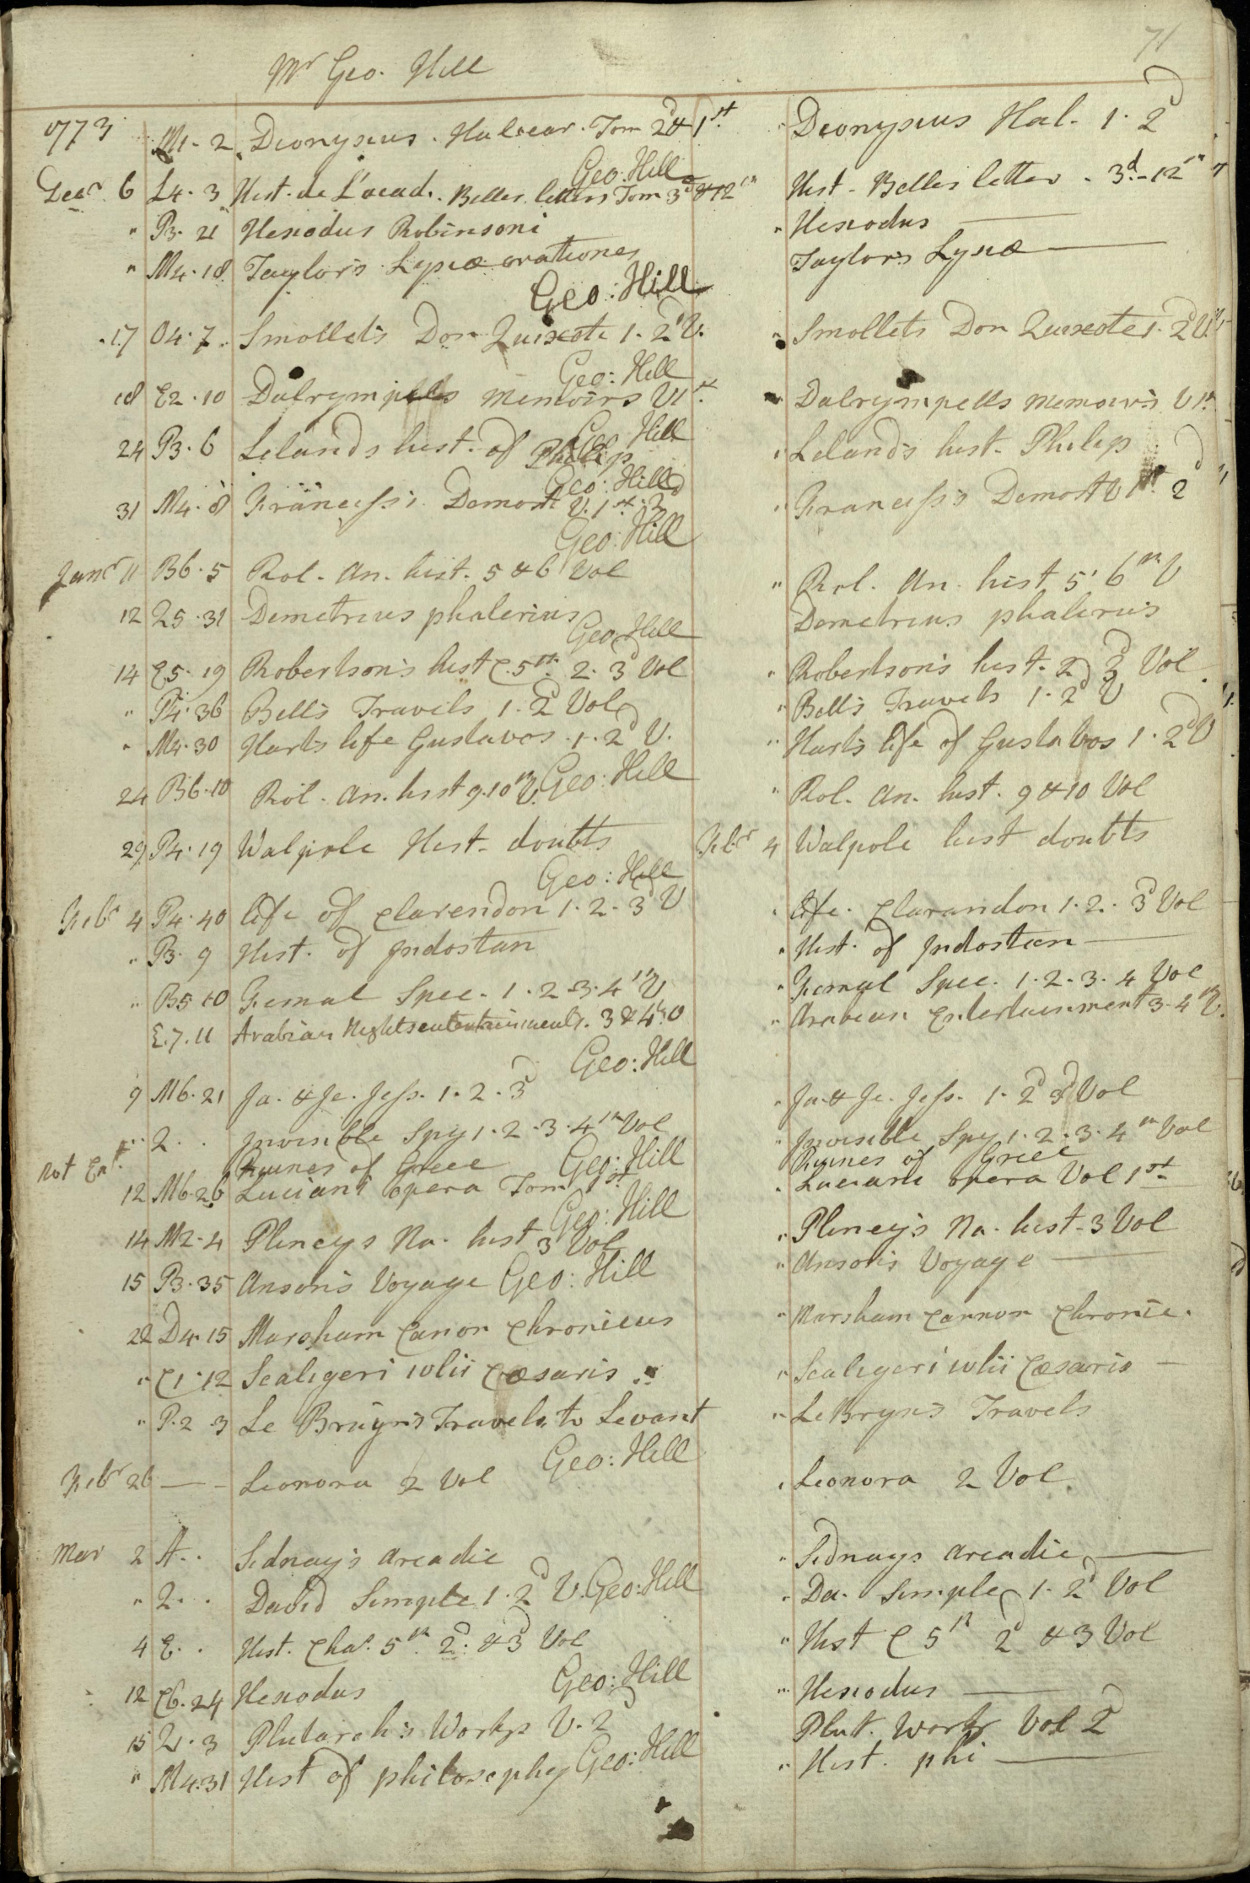 71
Mr Geo. Hill
1773 M1-2 Dionysius. Halicar. Tom 2d & 1st. Dionysius Hal. 1. 2d
Geo: Hill
Decr 6 L4-3 Hist. de L'acad. Belles letters Tom 3d & 12th Hist. Belles letter. 3d-12th
" P3. 21 Hesiodus Robinsoni " Hesiodus
" M4.18 Taylor's Lysiæ orationes Taylors Lysiæ
Geo: Hill
17 O4.7. Smollets Don Quixote 1. 2d V. " Smollets Don Quixote 1. 2d V.
Geo: Hill
18 E2.10 Dalrympells Memoirs V1st. " Dalrympells Memoirs V 1st
Geo Hill
24 P3.6 Lelands hist. of Philip " Lelands hist. Philip
Geo: Hill
31 M4.8 Francess's Demost V. 1st. 2d " Francess's Demost V 1st 2d
Geo: Hill
Janr 11 B6.5 Rol. An. hist. 5 & 6 Vol " Rol. An. hist 5. 6th V
12 Q5.31 Demetrius phalerius Demetrius phalerius
Geo Hill
14 E5.19 Robertson's hist C. 5th. 2. 3d Vol " Robertson's hist. 2d 3d Vol
" P4.36 Bell's Travels 1. 2d Vol " Bell's Travels 1. 2d V
" M4.30 Harts life Gustavos. 1. 2d V. " Hart's life of Gustabos 1. 2d V
24 B6.10 Rol. An. hist 9.10th V. Geo: Hill " Rol. An. hist. 9 & 10 Vol
29 P4.19 Walpole Hist. doubts Febr 4 Walpole hist doubts
Geo: Hill
Febr 4 P4.40 life of Clarendon 1. 2. 3d V " life. Clarandon 1. 2. 3d Vol
" P3. 9 Hist. of Indostan " Hist. of Indostan
" B5 10 Femal Spec. 1. 2. 3. 4th V " Femal Spec. 1. 2. 3. 4 Vol
E.7.11 Arabian Nights entertainments. 3 & 4th V " Arabian Entertainment 3. 4th V.
Geo: Hill
9 M6.21 Ja. & Je. Jess. 1. 2. 3d " Ja. & Je. Jess. 1. 2d 3d Vol
" 2.. Invisible Spy 1. 2. 3. 4th Vol " Invisible Spy 1. 2. 3. 4th Vol
not Ent. Ruines of Greece Geo: Hill Ruines of Greece
12 M6.26 Luciani opera Tom 1st " Luciani opera Vol 1st
Geo: Hill
14 M2.4 Plineys Na. hist 3 Vol " Pliney's Na. hist. 3 Vol
15 P3.35 Anson's Voyage Geo: Hill " Anson's Voyage
22 D4.15 Marsham Canon Chronicus " Marsham Cannon Chronic.
" C1.12 Scaligeri iulii Cæsaris " Scaligeri iulii Cæsaris
" P.2.3 Le Bruyn's Travels to Levant " Le Bryn's Travels
Geo: Hill
Febr 26 Leonora 2 Vol " Leonora 2 Vol.
Mar 2 A.. Sidnay's Arcadie " Sidnays Arcadie
" 2.. David Simple 1. 2d V. Geo: Hill " Da. Simple 1. 2d Vol
4 E.. Hist. Cha. 5th 2d. & 3d Vol " Hist C 5th 2d & 3 Vol
Geo: Hill
12 C6.24 Hesiodus " Hesiodus
15 2.3 Plutarch's Works V. 2d Plut. Works Vol 2d
" M4.31 Hist of philosophy Geo: Hill " Hist. phi